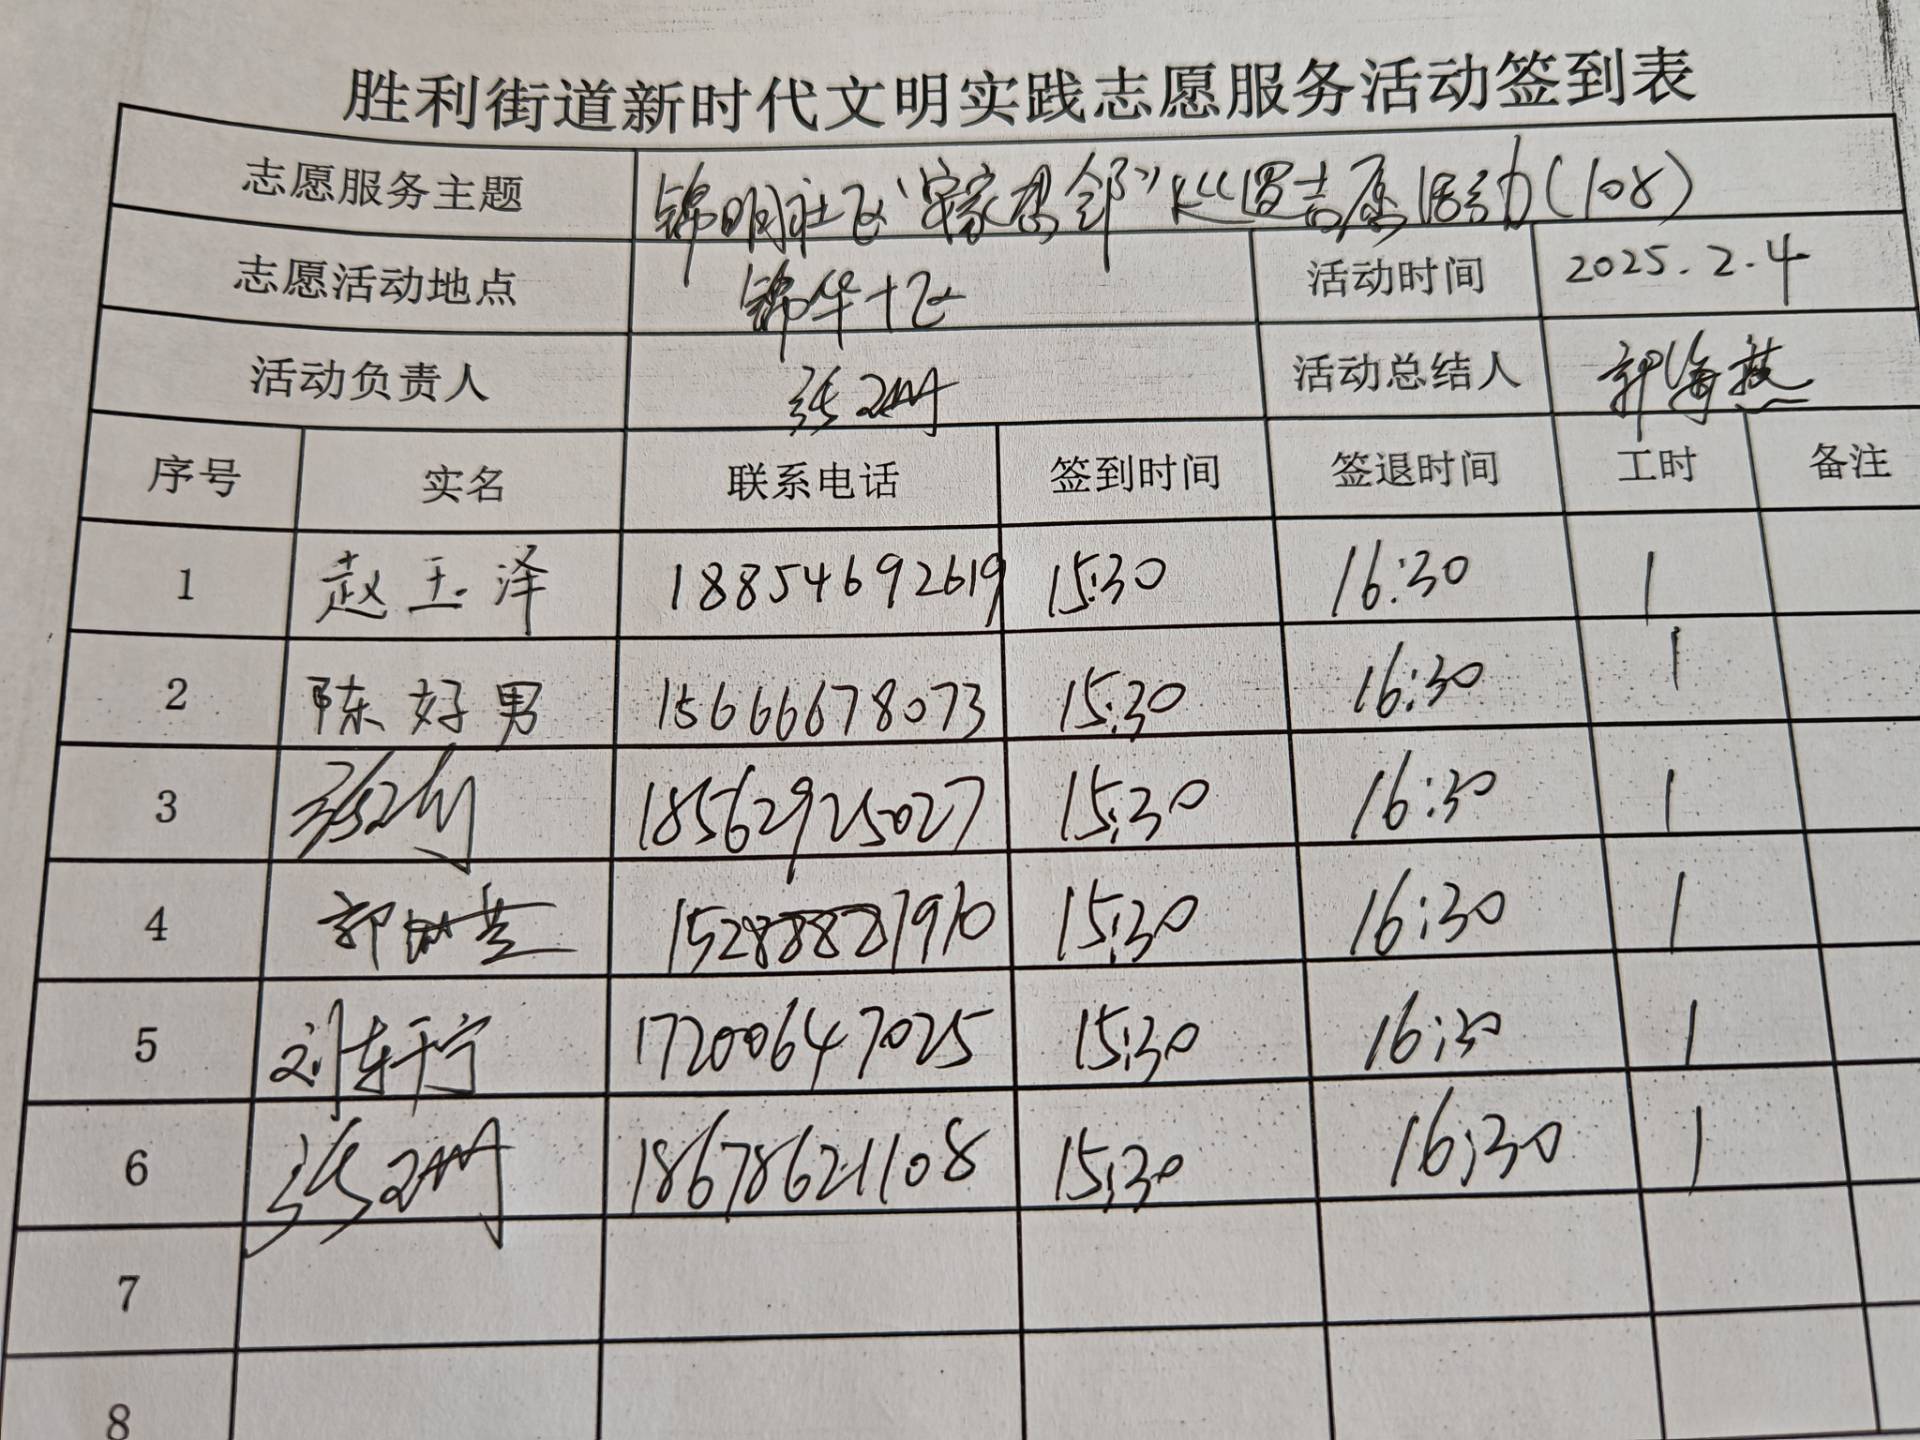 胜利街道新时代文明实践志愿服务活动签到表
志愿服务主题 锦明社区“安家惠邻” 活动(108)
志愿活动地点 锦华十区 活动时间 2025.2.4
活动负责人 张 活动总结人 郭海燕
序号 实名 联系电话 签到时间 签退时间 工时 备注
1 赵玉泽 18854692619 15:30 16:30 1
2 陈好男 15666678073 15:30 16:30 1
3 18562925027 15:30 16:30 1
4 郭 15:30 16:30 1
5 刘 17200647025 15:30 16:30 1
6 张 18678621108 15:30 16:30 1
7
8